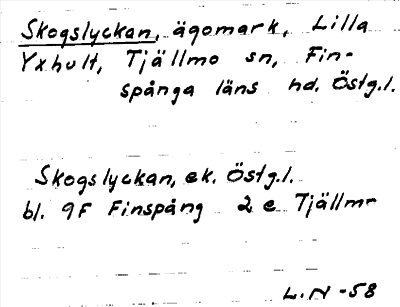 Skogslyckan, ägomark, Lilla
Yxhult, Tjällmo sn, Fin-
spånga läns hd. Östg.l.
Skogslyckan, ek. Östg.l.
bl. 9F Finspång 2 e Tjällm-
L.N -58